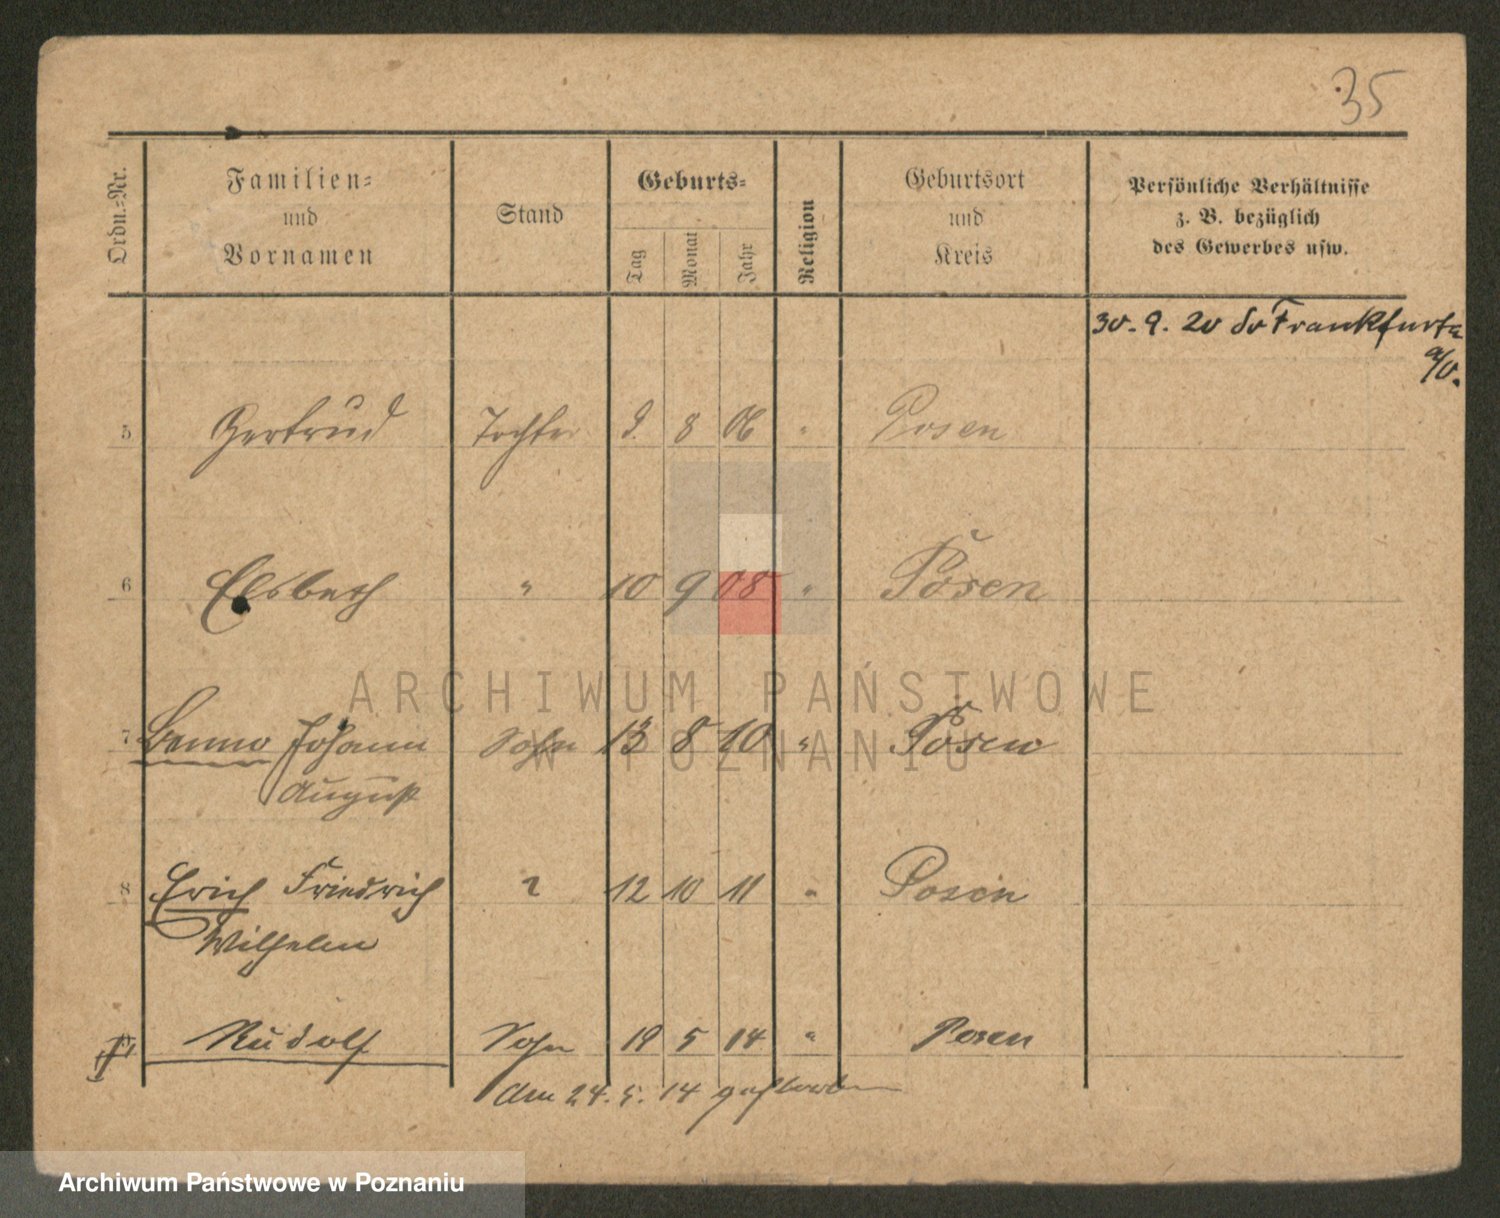 35
Ordn.-Nr.
Familien-
und
Vornamen
Stand
Geburts-
Tag
Monat
Jahr
Religion
Geburtsort
und
Kreis
Persönliche Verhältnisse
z. B. bezüglich
des Gewerbes usw.
30. 9. 20 Frankfurt
a/O.
5 Gertrud Tochter 9. 8 06 " Posen
6 Elsbeth " 10 9 08 " Posen
ARCHIWUM PAŃSTWOWE
W POZNANIU
7 Benno Johann Sohn 13 8 10 " Posen
August
8 Erich Friedrich " 12 10 11 " Posen
Wilhelm
Rudolf Sohn 19 5 14 " Posen
Am 24. 5. 14 gestorben
Archiwum Państwowe w Poznaniu